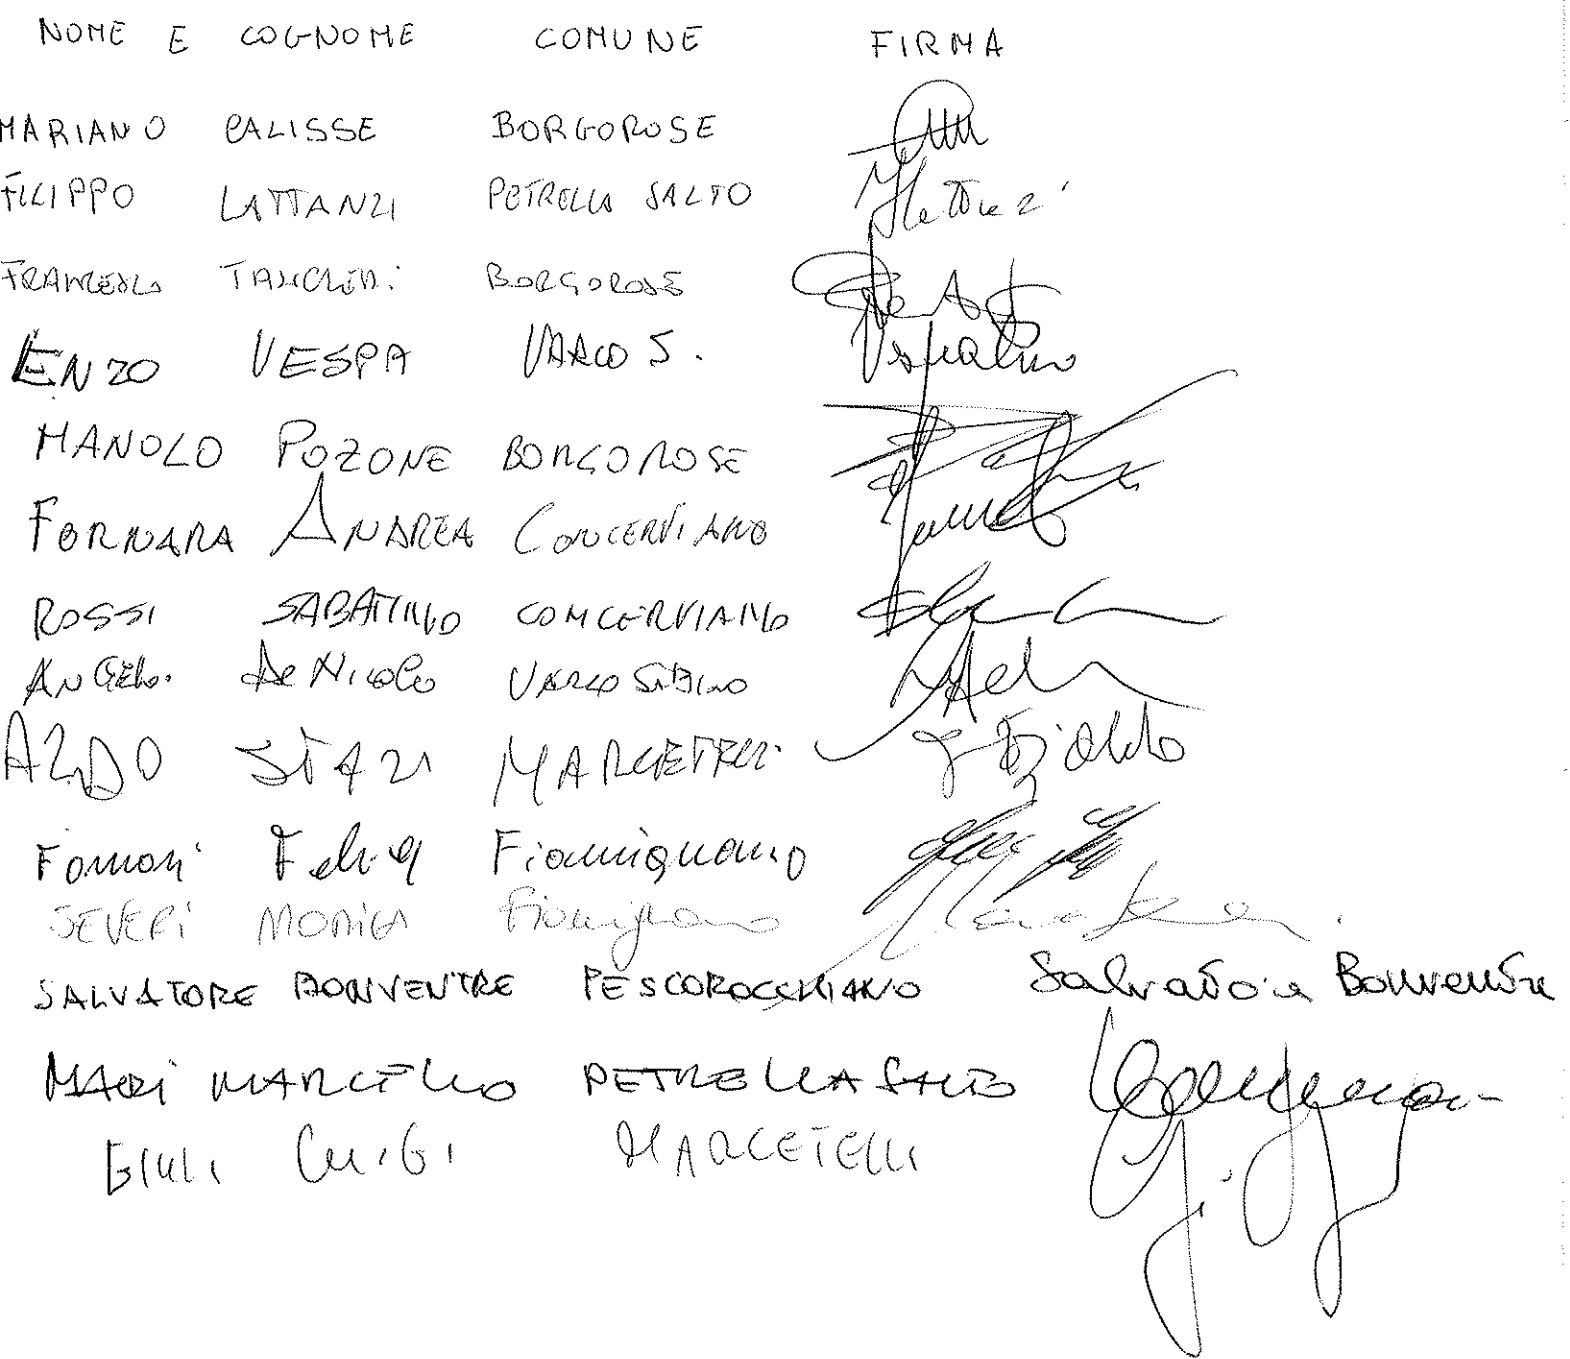 NOME E COGNOME COMUNE FIRMA
MARIANO CALISSE BORGOROSE
FILIPPO LATTANZI PETRELLA SALTO
FRANCESCO TANCREDI BORGOROSE
ENZO VESPA VARCO S.
MANOLO POZONE BORGOROSE
FORNARA ANDREA CONCERVIANO
ROSSI SABATINO CONCERVIANO
ANGELO DE NICOLO VARCO SABINO
ALDO STAZI MARCETELLI
Fornari Felice Fiamignano
SEVERI MONICA Fiamignano
SALVATORE BONVENTRE PESCOROCCHIANO Salvatore Bonventre
MARI MARCELLO PETRELLA SALTO
GIULI LUIGI MARCETELLI